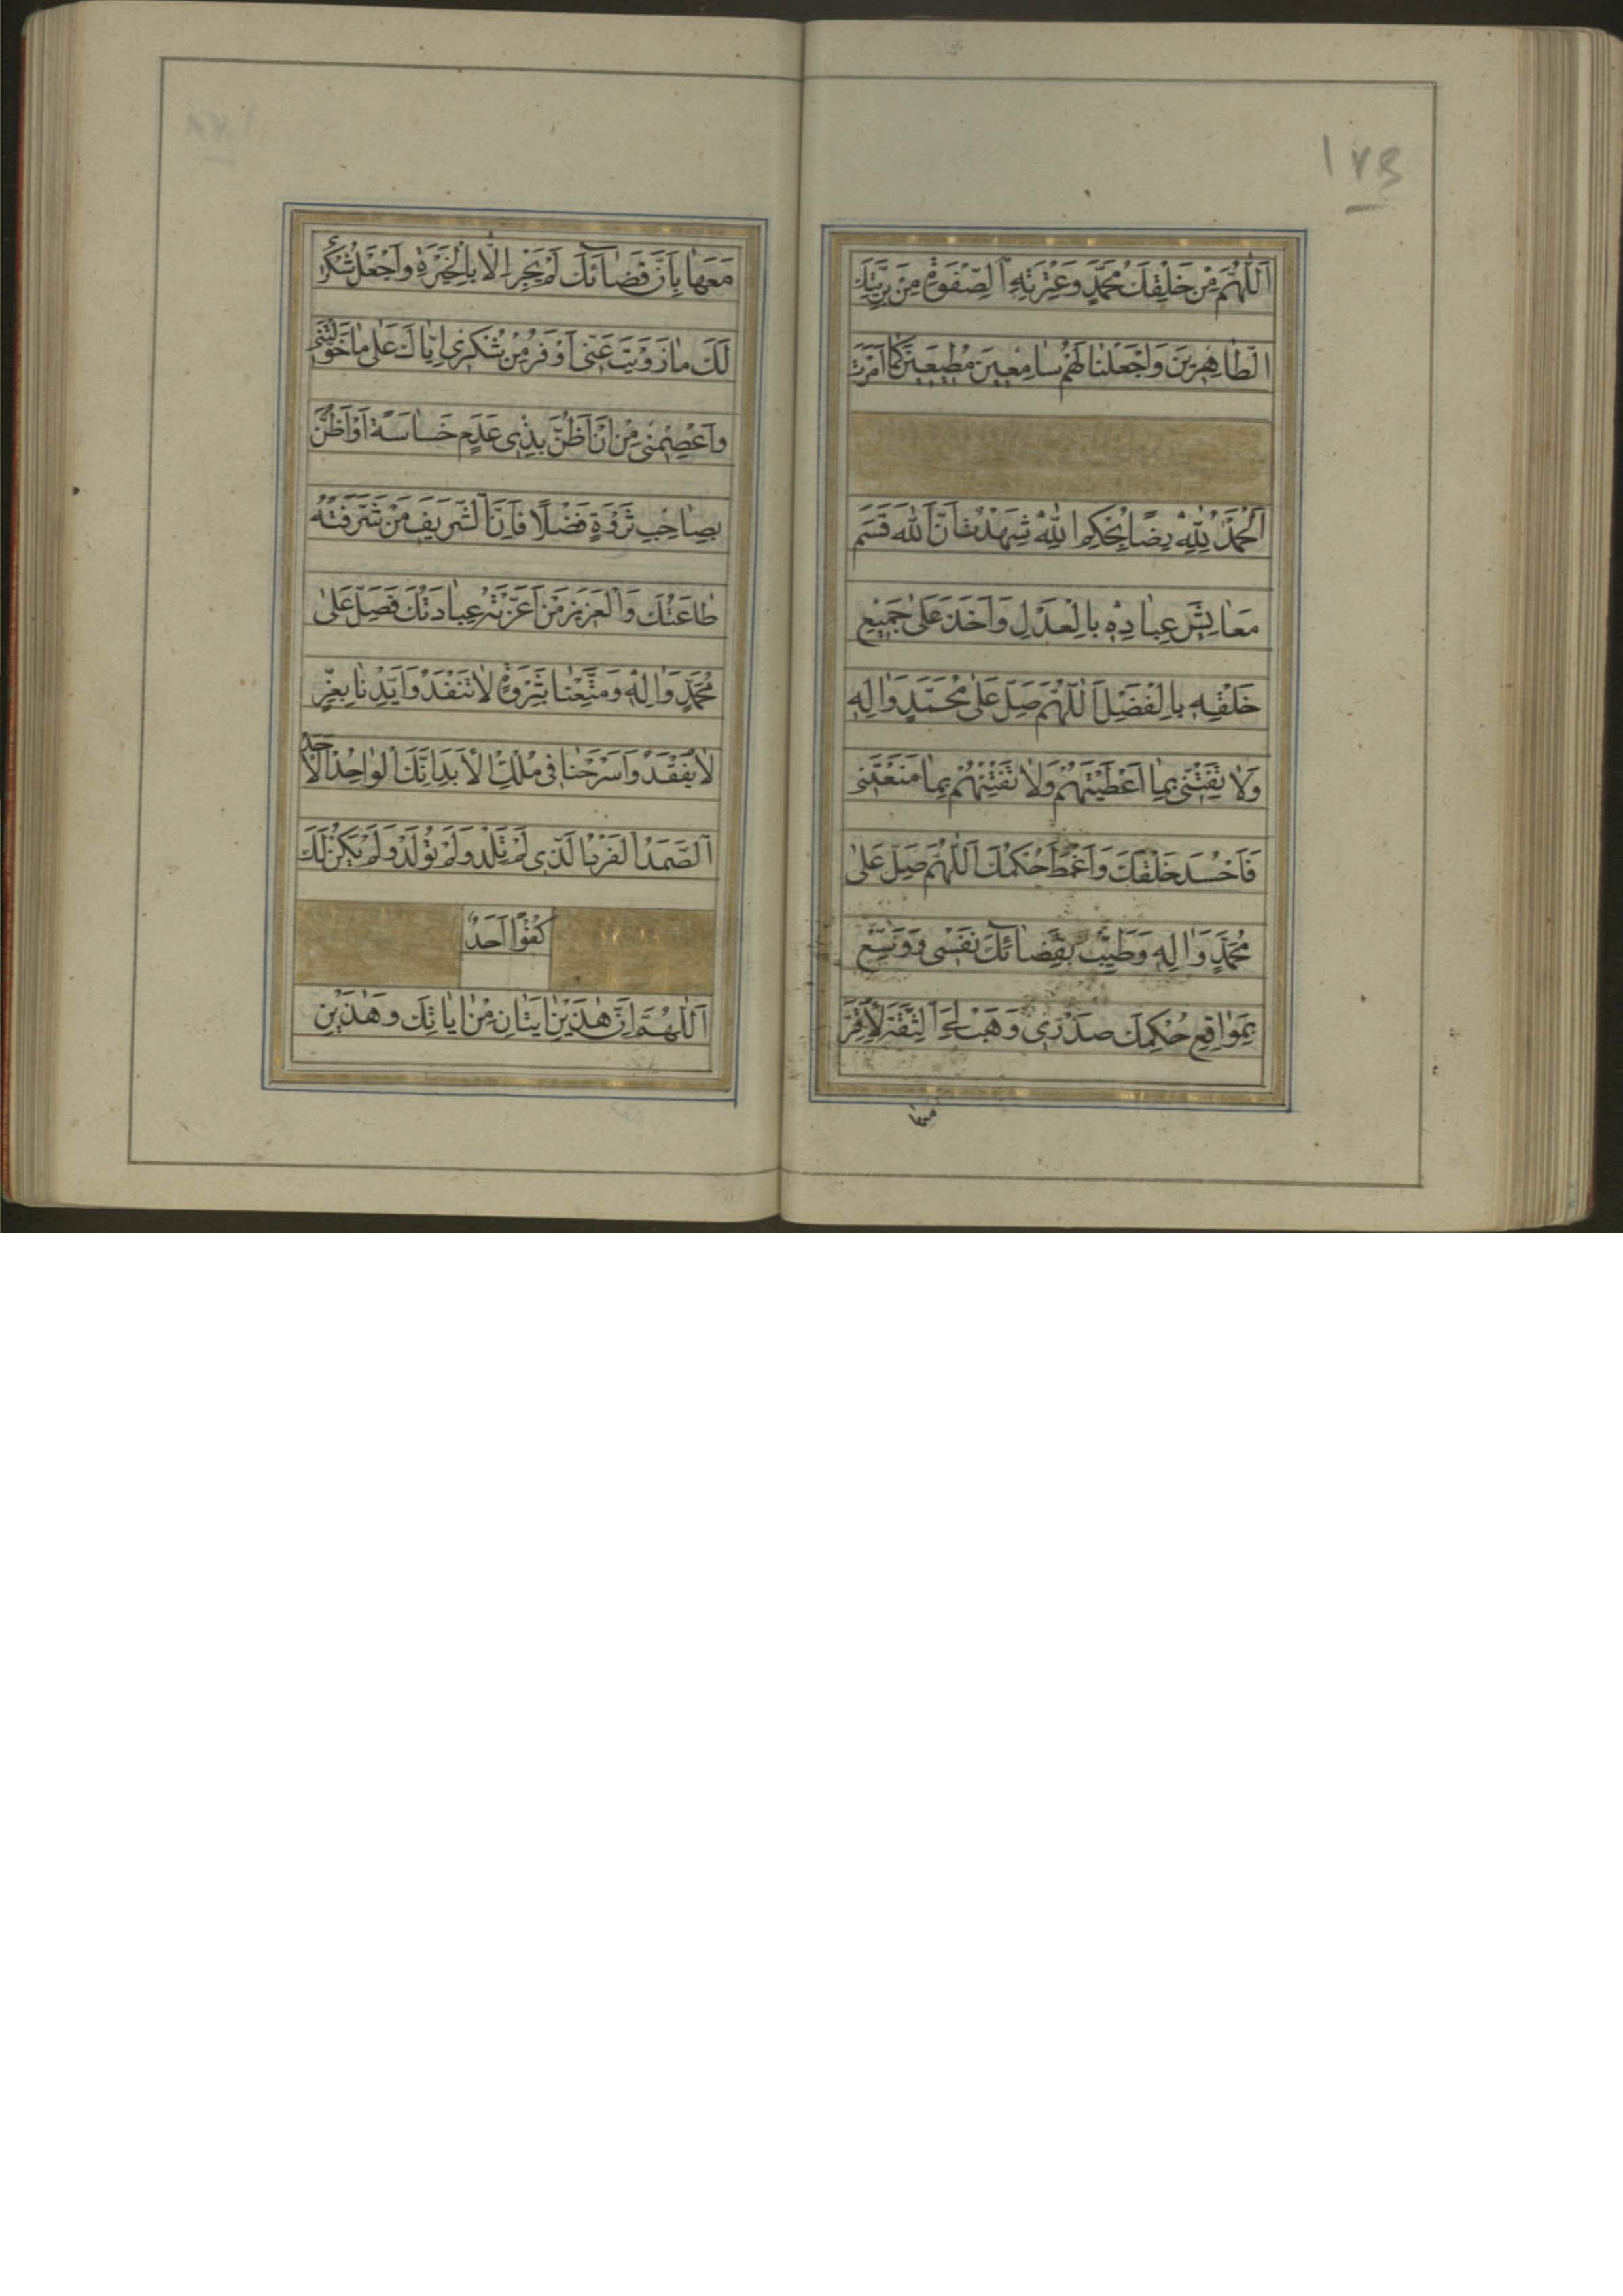 ١٧٣
اَللّٰهُمَّ مِنْ خَلْقِكَ مُحَمَّدٍ وَعِتْرَتِهِ الصِّفْوَةِ مِنْ بَرِيَّتِكَ
الطَّاهِرِينَ وَاجْعَلْنَا لَهُمْ سَامِعِينَ مُطِيعِينَ كَمَا اَمَرْتَ
اَلْحَمْدُ لِلّٰهِ رِضًا بِحُكْمِ اللّٰهِ شَهِدْتُ اَنَّ اللّٰهَ قَسَمَ
مَعَايِشَ عِبَادِهِ بِالْعَدْلِ وَاَخَذَ عَلٰى جَمِيعِ
خَلْقِهِ بِالْفَضْلِ اَللّٰهُمَّ صَلِّ عَلٰى مُحَمَّدٍ وَاٰلِهِ
وَلَا تَفْتِنِّي بِمَا اَعْطَيْتَهُمْ وَلَا تَفْتِنْهُمْ بِمَا مَنَعْتَنِي
فَاَحْسُدَ خَلْقَكَ وَاَغْمَطَ حُكْمَكَ اَللّٰهُمَّ صَلِّ عَلٰى
مُحَمَّدٍ وَاٰلِهِ وَطَيِّبْ بِقَضَائِكَ نَفْسِي وَوَسِّعْ
بِمَوَاقِعِ حُكْمِكَ صَدْرِي وَهَبْ لِيَ الثِّقَةَ لِاُقِرَّ
معها
مَعَهَا بِاَنَّ قَضَائَكَ لَمْ يَجْرِ اِلَّا بِالْخِيَرَةِ وَاجْعَلْ شُكْرِي
لَكَ مَا زَوَيْتَ عَنِّي اَوْفَرَ مِنْ شُكْرِي اِيَّاكَ عَلٰى مَا خَوَّلْتَنِي
وَاعْصِمْنِي مِنْ اَنْ اَظُنَّ بِذِي عَدَمٍ خَسَاسَةً اَوْ اَظُنَّ
بِصَاحِبِ ثَرْوَةٍ فَضْلًا فَاِنَّ الشَّرِيفَ مَنْ شَرَّفَتْهُ
طَاعَتُكَ وَالْعَزِيزَ مَنْ اَعَزَّتْهُ عِبَادَتُكَ فَصَلِّ عَلٰى
مُحَمَّدٍ وَاٰلِهِ وَمَتِّعْنَا بِثَرْوَةٍ لَا تَنْفَدُ وَاَيِّدْنَا بِعِزٍّ
لَا يُفْقَدُ وَاسْرَحْنَا فِي مُلْكِ الْاَبَدِ اِنَّكَ الْوَاحِدُ الْاَحَدُ
الصَّمَدُ الْفَرْدُ الَّذِي لَمْ تَلِدْ وَلَمْ تُولَدْ وَلَمْ يَكُنْ لَكَ
كُفُوًا اَحَدٌ
اَللّٰهُمَّ اِنَّ هٰذَيْنِ اٰيَتَانِ مِنْ اٰيَاتِكَ وَهٰذَيْنِ